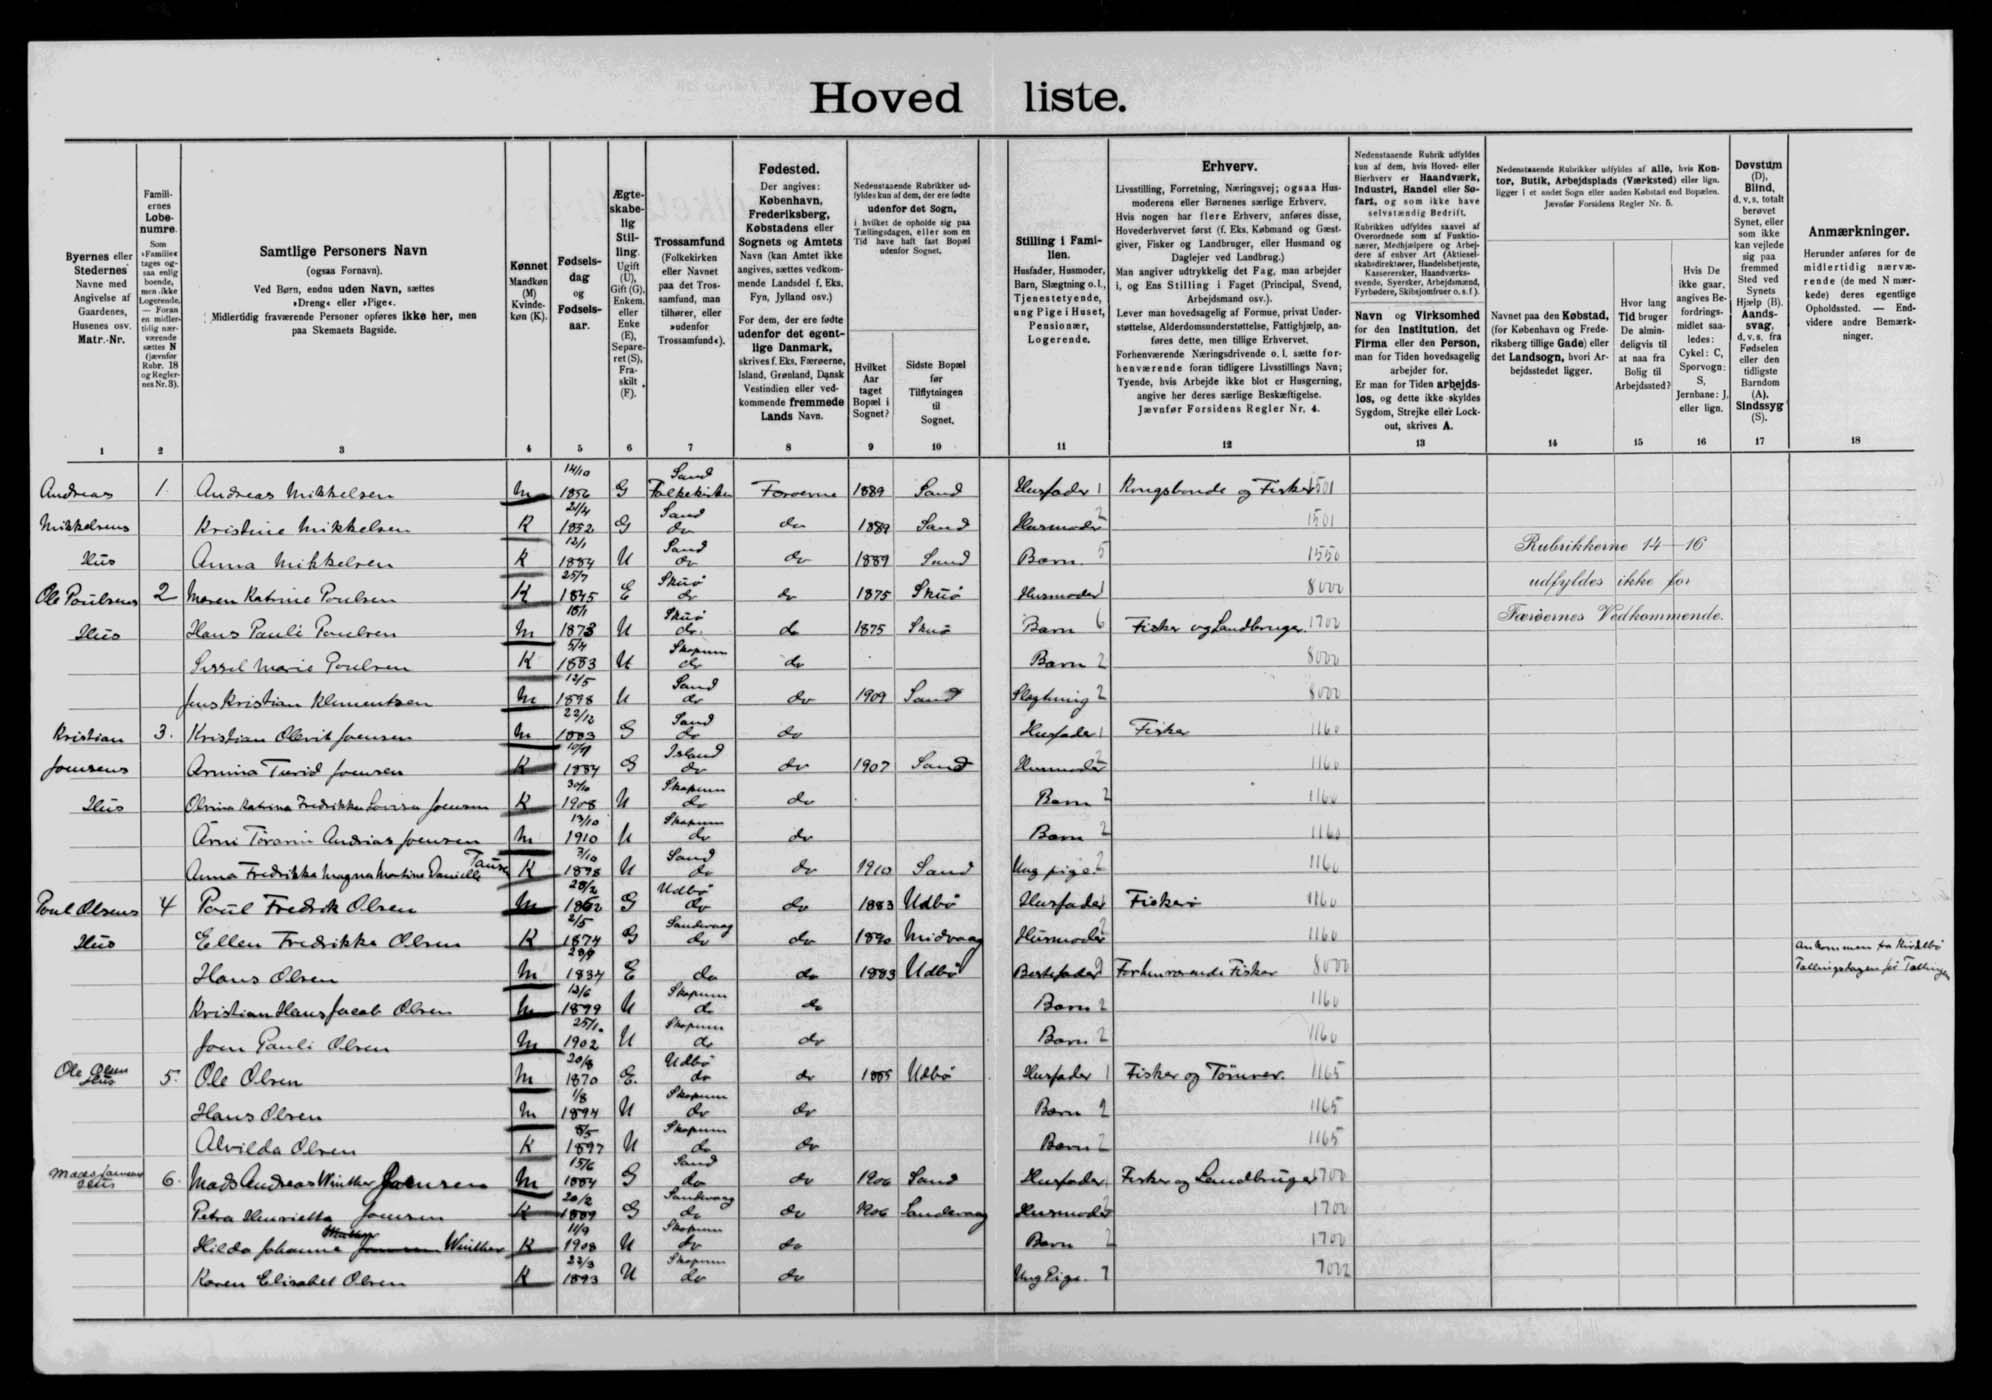 Hoved liste.
Byernes eller
Stedernes
Navne med
Angivelse af
Gaardenes,
Husenes osv.
Matr.-Nr.
1
Famili-
ernes
Løbe-
numre.
Som
»Familie«
tages og-
saa enlig
boende,
men ikke
Logerende.
— Foran
en midler-
tidig nær-
værende
sættes N
(jævnfør
Rubr. 18
og Regler-
nes Nr. 3).
2
Samtlige Personers Navn
(ogsaa Fornavn).
Ved Børn, endnu uden Navn, sættes
»Dreng« eller »Pige«.
Midlertidig fraværende Personer opføres ikke her, men
paa Skemaets Bagside.
3
Kønnet
Mandkøn
(M)
Kvinde-
køn (K).
4
Fødsels-
dag
og
Fødsels-
aar.
5
Ægte-
skabe-
lig
Stil-
ling.
Ugift
(U),
Gift (G),
Enkem.
eller
Enke
(E),
Separe-
ret (S),
Fra-
skilt
(F).
6
Trossamfund
(Folkekirken
eller Navnet
paa det Tros-
samfund, man
tilhører, eller
»udenfor
Trossamfund«).
7
Fødested.
Der angives:
København,
Frederiksberg,
Købstadens eller
Sognets og Amtets
Navn (kan Amtet ikke
angives, sættes vedkom-
mende Landsdel f. Eks.
Fyn, Jylland osv.)
For dem, der ere fødte
udenfor det egent-
lige Danmark,
skrives f. Eks. Færøerne,
Island, Grønland, Dansk
Vestindien eller ved-
kommende fremmede
Lands Navn.
8
Nedenstaaende Rubrikker ud-
fyldes kun af dem, der ere fødte
udenfor det Sogn,
i hvilket de opholde sig paa
Tællingsdagen, eller som en
Tid have haft fast Bopæl
udenfor Sognet.
Hvilket
Aar
taget
Bopæl i
Sognet?
9
Sidste Bopæl
før
Tilflytningen
til
Sognet.
10
Stilling i Fami-
lien.
Husfader, Husmoder,
Barn, Slægtning o.l.,
Tjenestetyende,
ung Pige i Huset,
Pensionær,
Logerende.
11
Erhverv.
Livsstilling, Forretning, Næringsvej; ogsaa Hus-
moderens eller Børnenes særlige Erhverv.
Hvis nogen har flere Erhverv, anføres disse,
Hovederhvervet først (f. Eks. Købmand og Gæst-
giver, Fisker og Landbruger, eller Husmand og
Daglejer ved Landbrug.)
Man angiver udtrykkelig det Fag, man arbejder
i, og Ens Stilling i Faget (Principal, Svend,
Arbejdsmand osv.).
Lever man hovedsagelig af Formue, privat Under-
støttelse, Alderdomsunderstøttelse, Fattighjælp, an-
føres dette, men tillige Erhvervet.
Forhenværende Næringsdrivende o. l. sætte for-
henværende foran tidligere Livsstillings Navn;
Tyende, hvis Arbejde ikke blot er Husgerning,
angive her deres særlige Beskæftigelse.
Jævnfør Forsidens Regler Nr. 4.
12
Nedenstaaende Rubrik udfyldes
kun af dem, hvis Hoved- eller
Bierhverv er Haandværk,
Industri, Handel eller Sø-
fart, og som ikke have
selvstændig Bedrift.
Rubrikken udfyldes saavel af
Overordnede som af Funktio-
nærer, Medhjælpere og Arbej-
dere af enhver Art (Aktiesel-
skabsdirektører, Handelsbetjente,
Kassererske, Haandværks-
svende, Syersker, Arbejdsmænd,
Fyrbødere, Skibsjomfruer o. s. f.).
Navn og Virksomhed
for den Institution, det
Firma eller den Person,
man for Tiden hovedsagelig
arbejder for.
Er man for Tiden arbejds-
løs, og dette ikke skyldes
Sygdom, Strejke eller Lock-
out, skrives A.
13
Nedenstaaende Rubrikker udfyldes af alle, hvis Kon-
tor, Butik, Arbejdsplads (Værksted) eller lign.
ligger i et andet Sogn eller anden Købstad end Bopælen.
Jævnfør Forsidens Regler Nr. 5.
Navnet paa den Købstad,
(for København og Frede-
riksberg tillige Gade) eller
det Landsogn, hvori Ar-
bejdsstedet ligger.
14
Hvor lang
Tid bruger
De almin-
deligvis til
at naa fra
Bolig til
Arbejdssted?
15
Hvis De
ikke gaar,
angives Be-
fordrings-
midlet saa-
ledes:
Cykel: C,
Sporvogn:
S,
Jernbane: J,
eller lign.
16
Døvstum
(D),
Blind,
d. v. s. totalt
berøvet
Synet, eller
som ikke
kan vejlede
sig paa
fremmed
Sted ved
Synets
Hjælp (B).
Aands-
svag,
d. v. s. fra
Fødselen
eller den
tidligste
Barndom
(A).
Sindssyg
(S).
17
Anmærkninger.
Herunder anføres for de
midlertidig nærvæ-
rende (de med N mær-
kede) deres egentlige
Opholdssted. — End-
videre andre Bemærk-
ninger.
18
Rubrikkerne 14—16
udfyldes ikke for
Færøernes Vedkommende.
14/10 Sand
Andreas 1. Andreas Mikkelsen M 1856 G Folkekirken Færøerne 1889 Sand Husfader 1 Kongsbonde og Fisker 1501
21/4 Sand
Mikkelsens Kristine Mikkelsen K 1852 G do do 1889 Sand Husmoder 2 1501
12/1 Sand
Hus Anna Mikkelsen K 1884 U do do 1889 Sand Barn 5 1550
25/7 Skuö
Ole Poulsens 2 Maren Katrine Poulsen K 1845 E do do 1875 Skuö Husmoder 1 8000
18/1 Skuö
Hus Hans Pauli Poulsen M 1873 U do. do 1875 Skuö Barn 6 Fisker og Landbruger. 1700
5/4 Skopun
Sissel Marie Poulsen K 1883 U do do Barn 2 8000
12/5 Sand
Jens Kristian Klementsen M 1898 U do do 1909 Sand Slægtning 2 8000
22/12 Sand
Kristian 3. Kristian Olevik Joensen M 1883 G do do Husfader 1 Fisker 1160
Island
Joensens Turid Joensen K 1884 G do do 1907 Sand Husmoder 2 1160
30/10 Skopun
Hus Katrina Fredrikka Lovisa Joensen K 1908 U do do Barn 2 1160
13/10 Skopun
Árni Tórarin Andrias Joensen M 1910 U do do Barn 2 1160
3/10 Sand
Anna Fredrikka Magna Martine Danielle Tausen K 1898 U do do 1910 Sand Ung pige 2 1160
28/2 Udbö
Poul Olsens 4 Poul Fredrik Olsen M 1862 G do do 1883 Udbö Husfader 1 Fiskeri 1160
2/5 Sandevaag
Hus Ellen Fredrikke Olsen K 1874 G do do 1890 Midvaag Husmoder 2 1160
Hans Olsen M 1834 E do do 1883 Udbö Bestefader Forhenværende Fisker 8000
Ankommen fra
Tællingsdagen før Tællingen
12/6 Skopun
Kristian Hans Jacob Olsen M 1899 U do do Barn 2 1160
25/10 Skopun
Joen Pauli Olsen M 1902 U do do Barn 2 1160
20/8 Udbö
Ole Olsens Hus 5. Ole Olsen M 1870 E. do do 1885 Udbö Husfader 1 Fisker og Tömrer. 1165
1/8 Skopun
Hans Olsen M 1894 U do do Barn 2 1165
8/5 Skopun
Alvilda Olsen K 1897 U do do Barn 2 1165
15/6 Sand
Mads Joensens Hus 6. Mads Andreas Winther Joensen M 1884 G do do 1906 Sand Husfader 1 Fisker og Landbruger 1700
20/2 Sandevaag
Petra Henrietta Joensen K 1889 G do do 1906 Sandevaag Husmoder 2 1700
11/9 Skopun
Hilda Johanne Winther K 1908 U do do Barn 2 1700
22/3 Skopun
Karen Elisabet Olsen K 1893 U do do Ung Pige. 7 7022